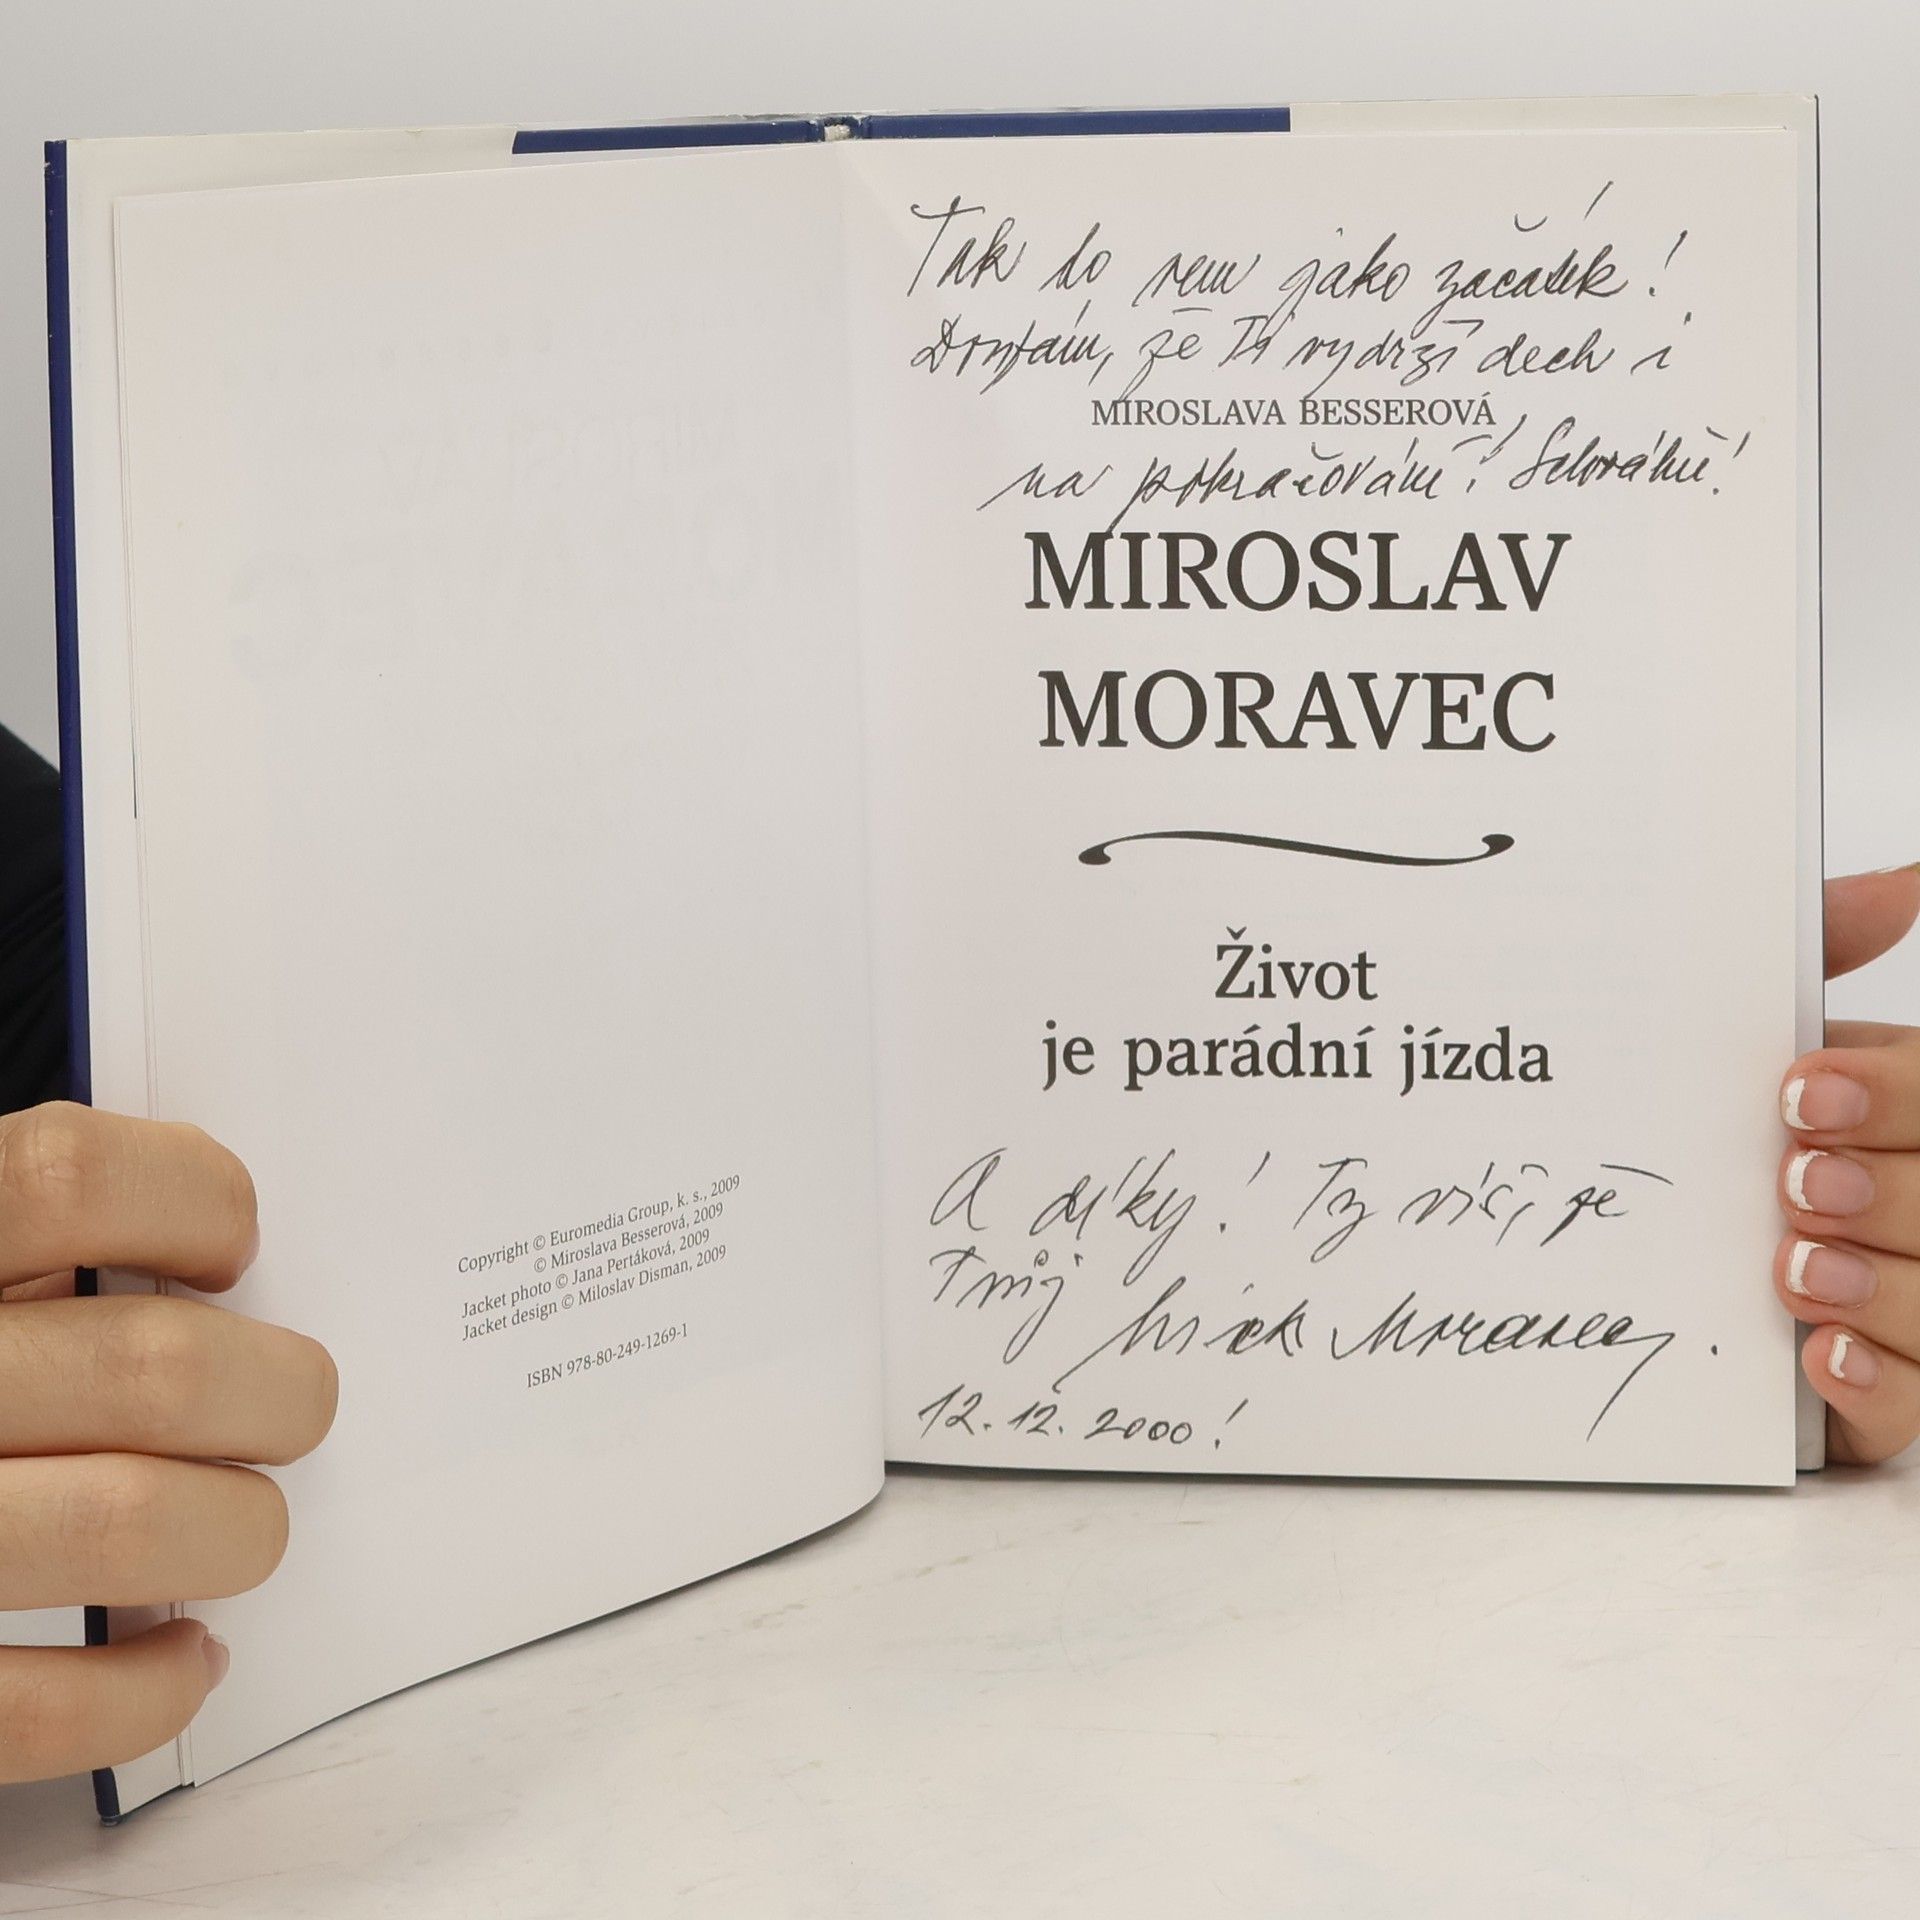 Copyright © Euromedia Group, k. s., 2009
© Miroslava Besserová, 2009
Jacket photo © Jana Pertáková, 2009
Jacket design © Miloslav Disman, 2009
ISBN 978-80-249-1269-1
Tak to jako začátek!
Doufám, že Ti vydrží dech i
MIROSLAVA BESSEROVÁ
na pokračování!
MIROSLAV
MORAVEC
Život
je parádní jízda
A díky! Ty víš, že
Tvůj Mirek Moravec.
12. 12. 2000!